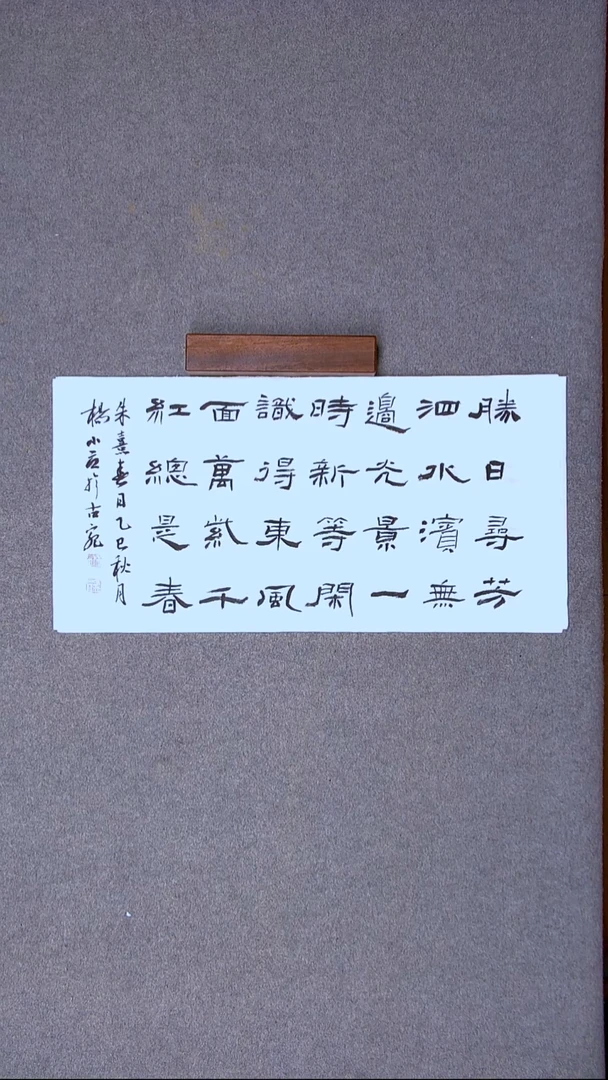 勝日尋芳
泗水濱無
邊光景一
時新等閑
識得東風
面萬紫千
紅總是春
朱熹春日乙巳秋月
小於古宛